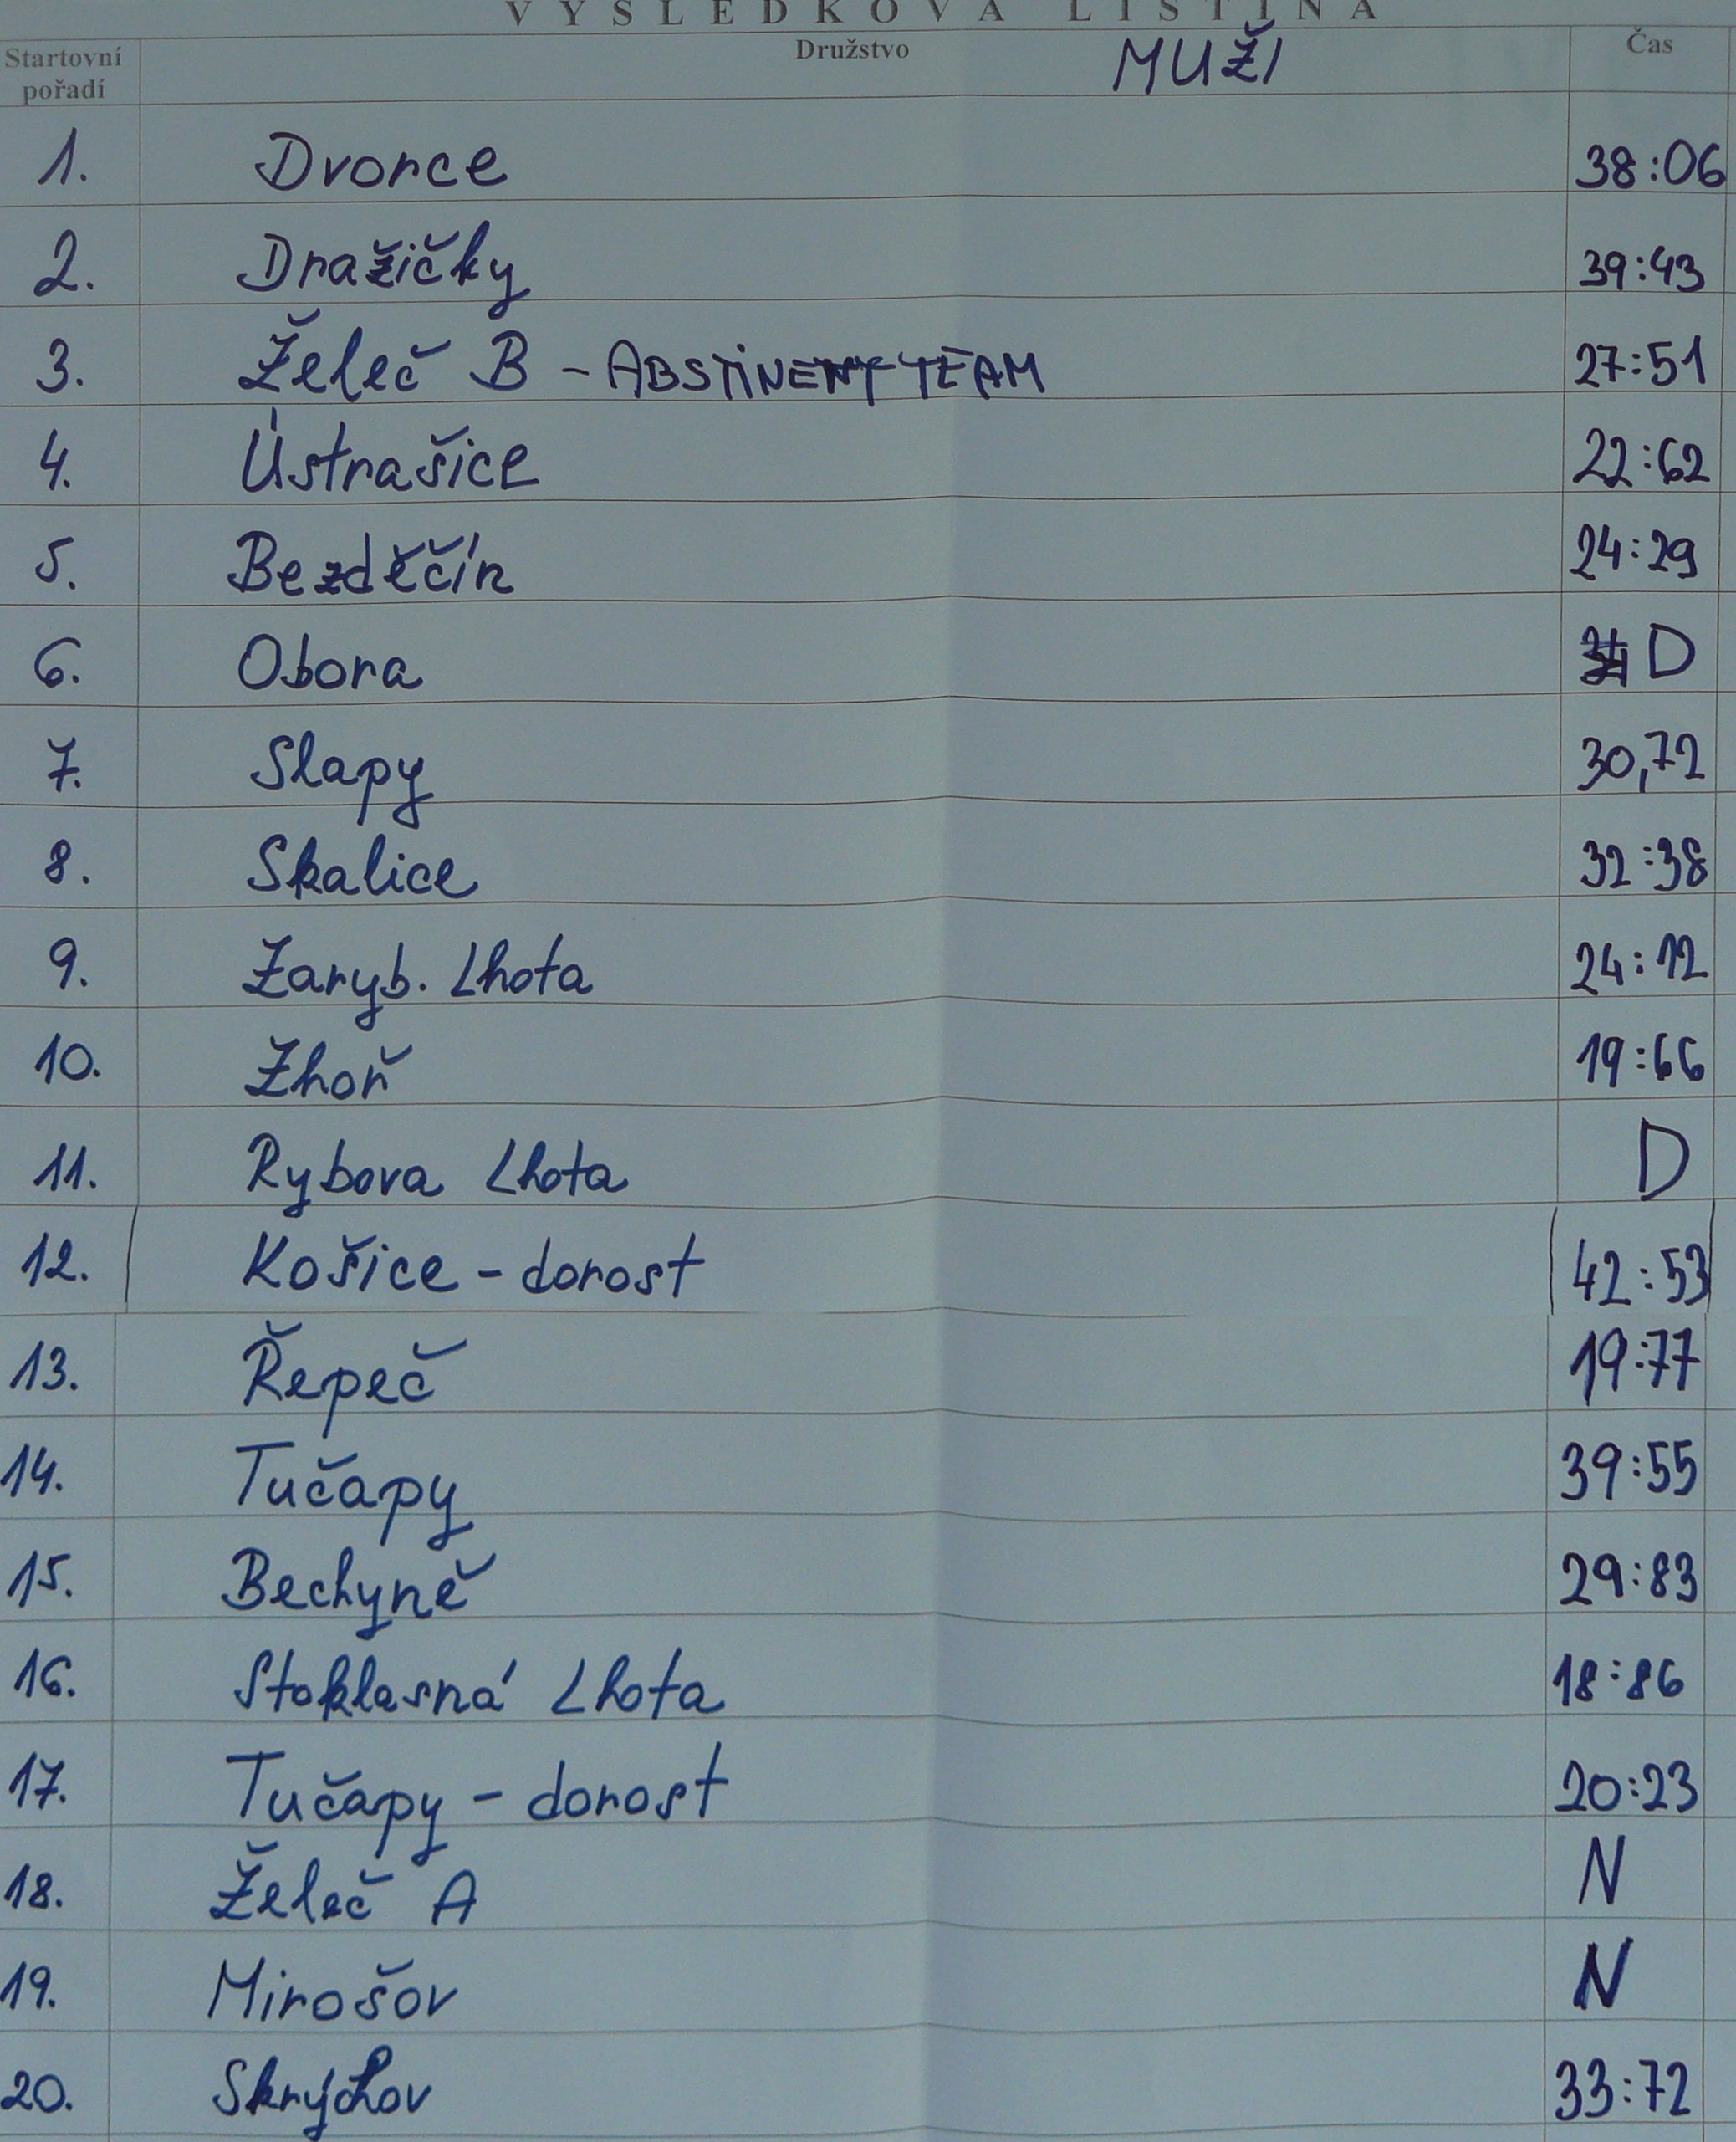 VÝSLEDKOVÁ LISTINA
Startovní pořadí Družstvo MUŽI Čas
1. Dvorce 38:06
2. Dražičky 39:43
3. Želeč B - ABSTINENT TEAM 27:51
4. Ústrašice 22:62
5. Bezděčín 24:29
6. Obora D
7. Slapy 30,72
8. Skalice 32:38
9. Zaryb. Lhota 24:12
10. Zhoř 19:66
11. Rybova Lhota D
12. Košice - dorost 42:53
13. Řepeč 19:77
14. Tučapy 39:55
15. Bechyně 29:83
16. Stoklasná Lhota 18:86
17. Tučapy - dorost 20:23
18. Želeč A N
19. Mirošov N
20. Skrýchov 33:72